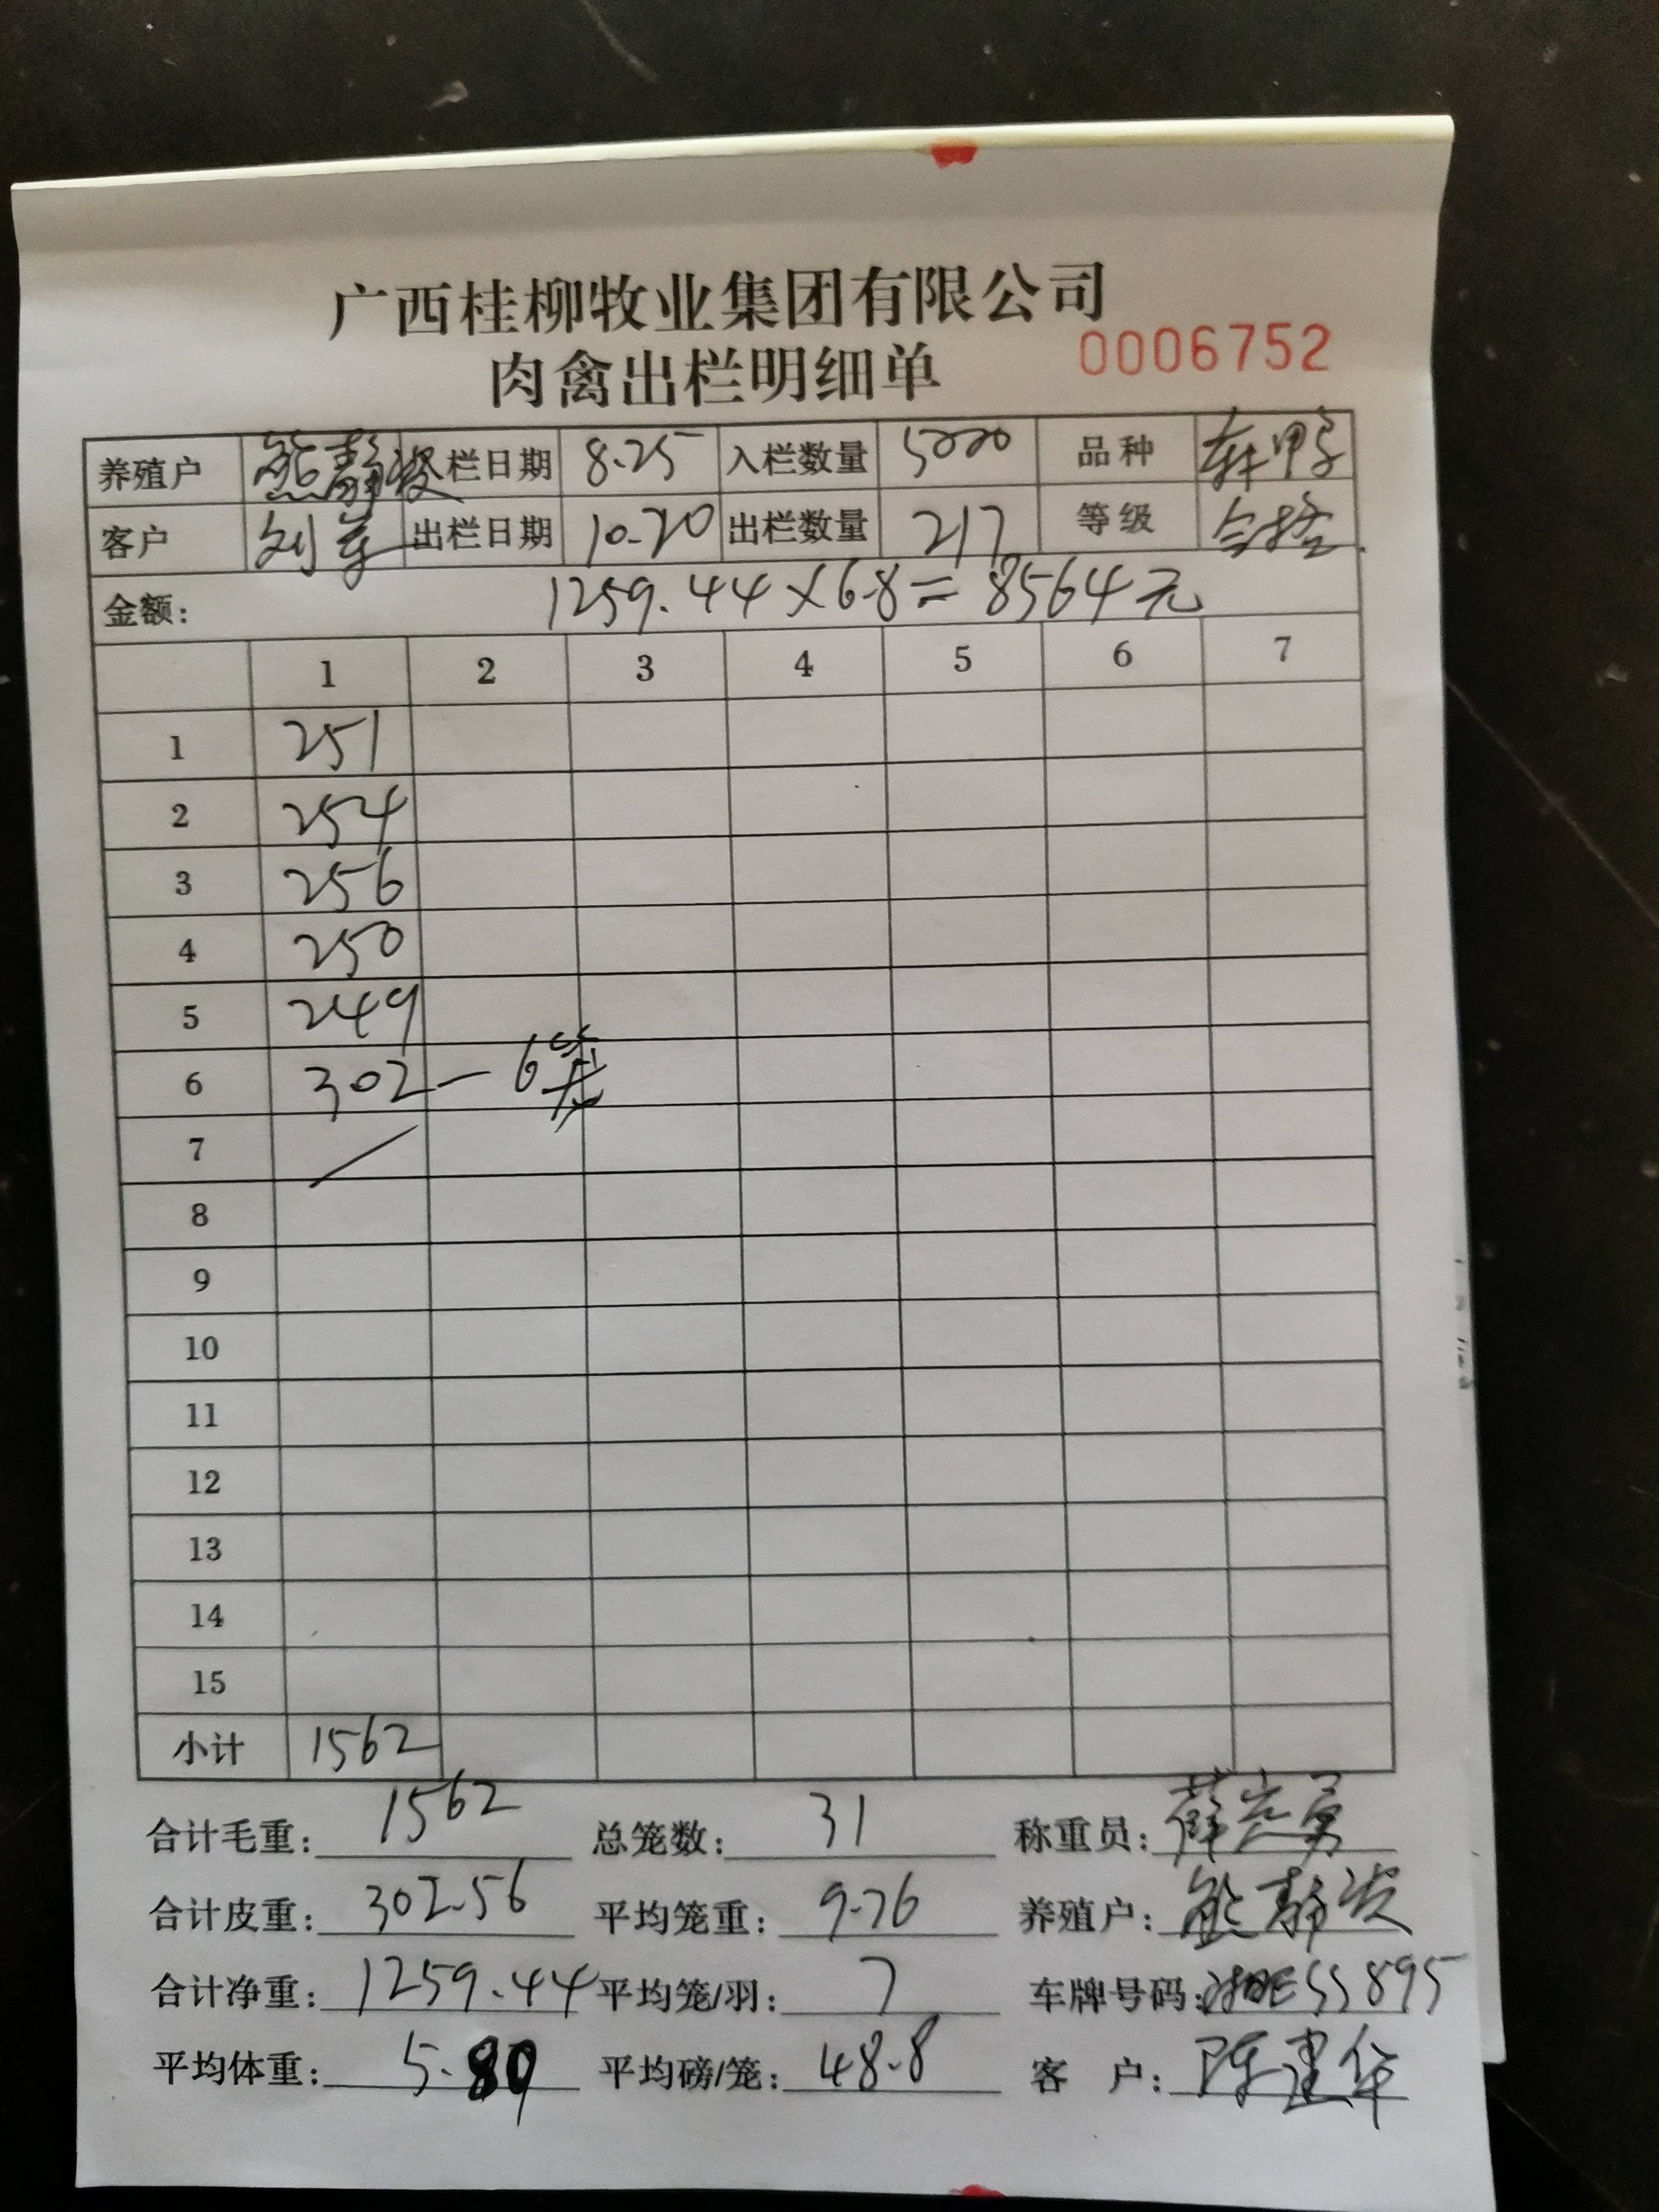 广西桂柳牧业集团有限公司
肉禽出栏明细单 0006752
养殖户 熊静 入栏日期 8.25 入栏数量 5000 品种
客户 刘 出栏日期 10.20 出栏数量 217 等级 合格
金额: 1259.44×6.8=8564元
1 2 3 4 5 6 7
1 251
2 254
3 256
4 250
5 249
6 302—6笼
7
8
9
10
11
12
13
14
15
小计 1562
合计毛重: 1562 总笼数: 31 称重员: 薛
合计皮重: 302.56 平均笼重: 9.76 养殖户: 熊静
合计净重: 1259.44 平均笼/羽: 7 车牌号码: 湘ESS895
平均体重: 5.80 平均磅/笼: 48.8 客 户: 陈建华